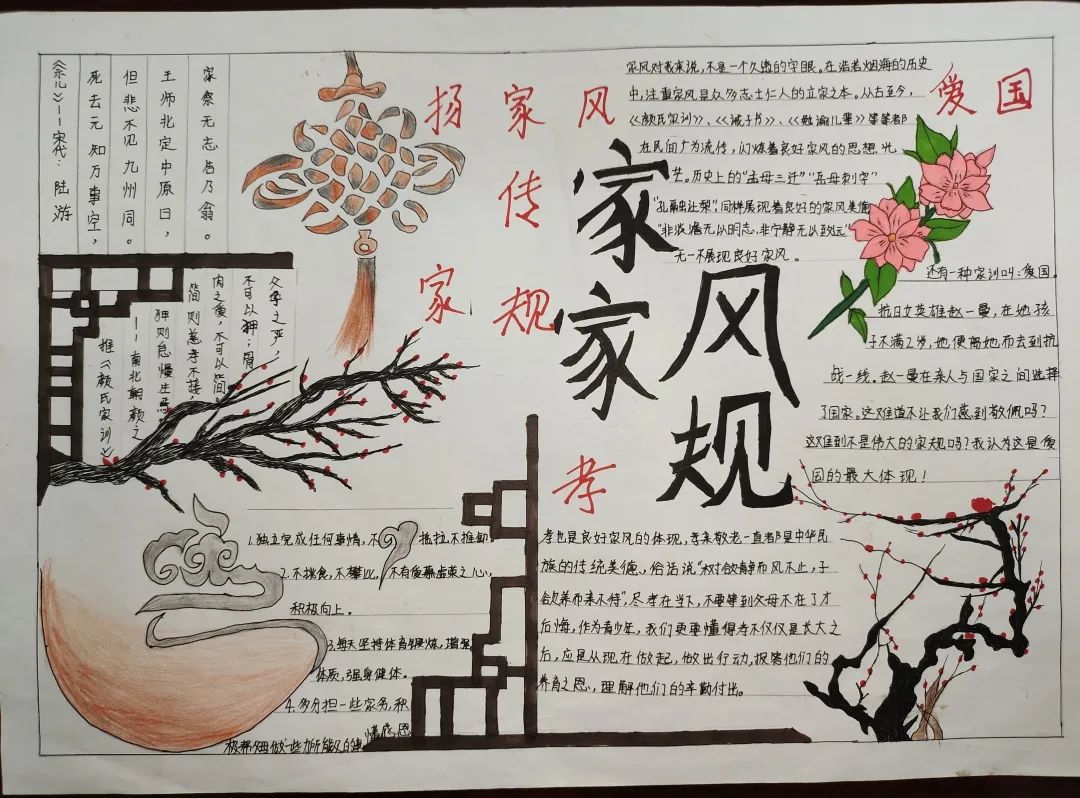 扬家风
传
家规
家风
家规
爱国
孝
《示儿》——宋代：陆游
死去元知万事空，
但悲不见九州同。
王师北定中原日，
家祭无忘告乃翁。
父子之严，
不可以狎；骨
肉之爱，不可以简
简则慈孝不接，
狎则怠慢生焉
——南北朝颜之
推《颜氏家训》
家风对我来说，不是一个久违的字眼。在浩若烟海的历史
中，注重家风是众多志士仁人的立家之本。从古至今，
《颜氏家训》、《诫子书》、《勉谕儿辈》等等都
在民间广为流传，闪烁着良好家风的思想光
芒。历史上的“孟母三迁”“岳母刺字”
“孔融让梨”同样展现着良好的家风美德
“非淡泊无以明志、非宁静无以致远”
无一不展现良好家风。
还有一种家训叫：爱国。
抗日女英雄赵一曼，在她孩
子不满2岁，她便离她而去到抗
战一线。赵一曼在亲人与国家之间选择
了国家。这难道不让我们感到敬佩吗？
这难到不是伟大的家规吗？我认为这是爱
国的最大体现！
1.独立完成任何事情，不拖拉，不推卸
2.不挑食，不攀比，不有爱慕虚荣之心，
积极向上。
3.每天坚持体育锻炼，增强
体质，强身健体。
4.多分担一些家务，积
极帮父母做一些力所能及的事
懂感恩
孝也是良好家风的体现，孝亲敬老一直都是中华民
族的传统美德、俗话说“树欲静而风不止，子
欲养而亲不待”，尽孝在当下，不要等到父母不在了才
后悔，作为青少年，我们更要懂得孝不仅仅是长大之
后，应是从现在做起，做出行动，报答他们的
养育之恩、，理解他们的辛勤付出。